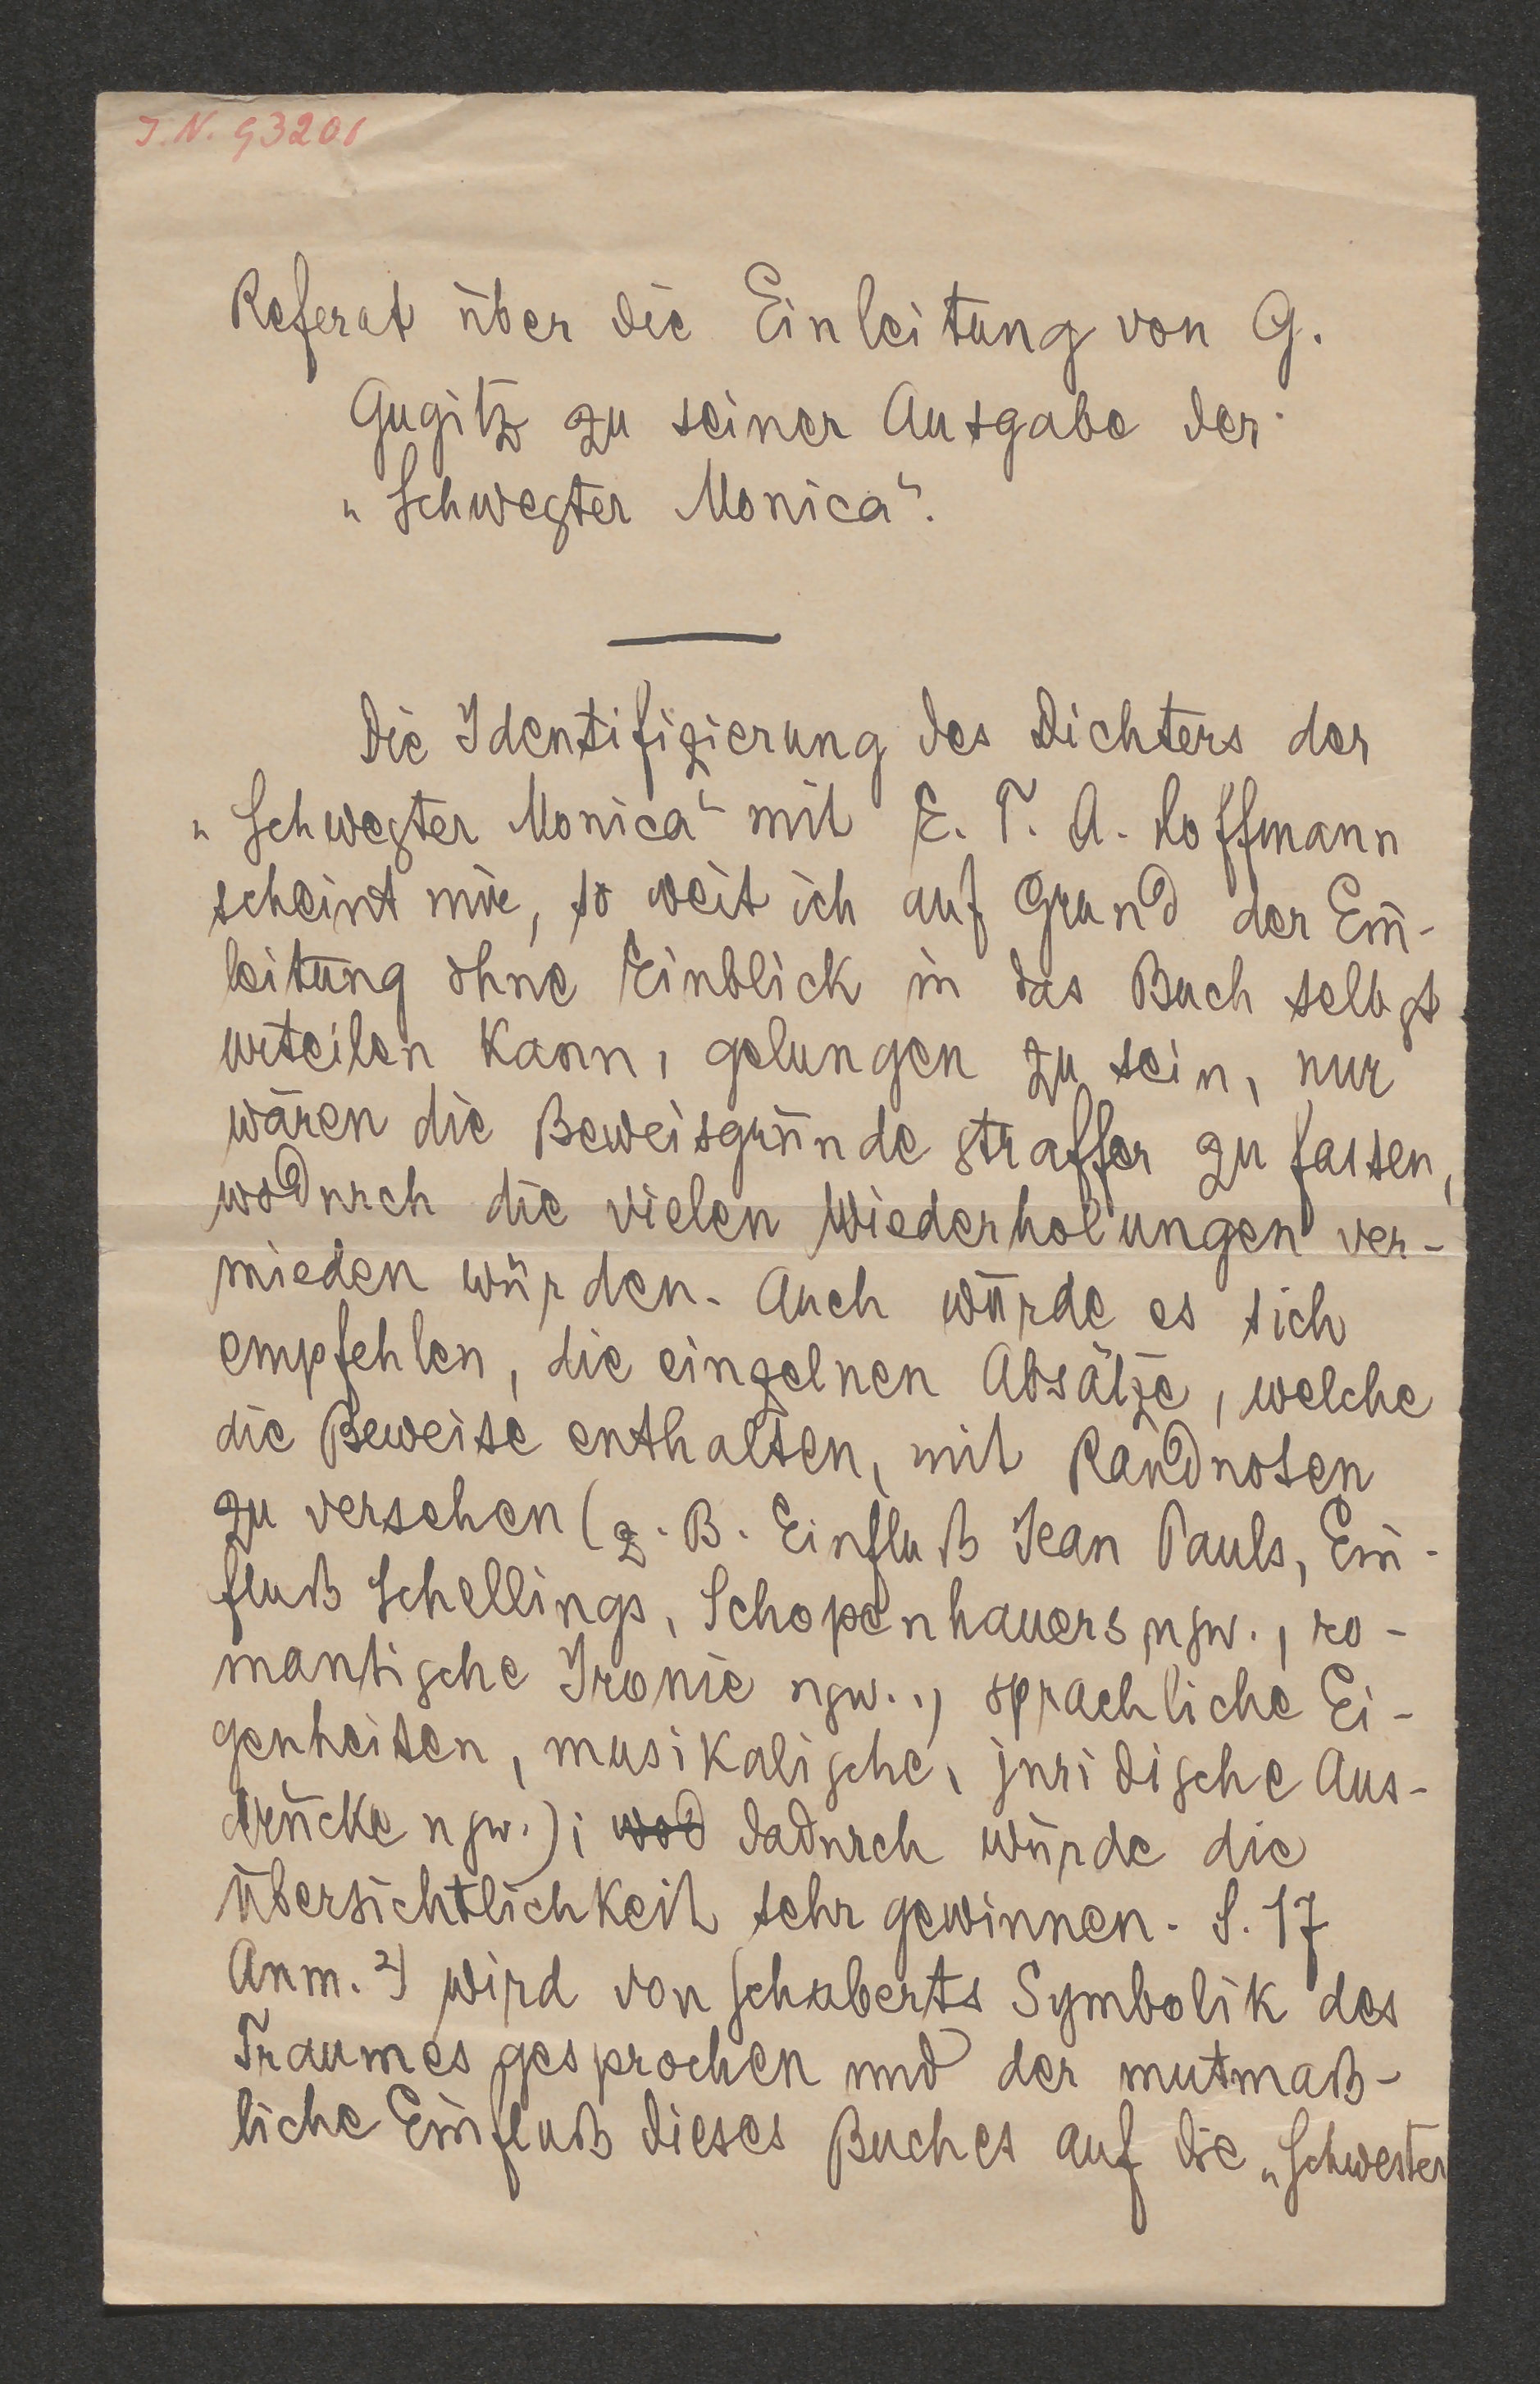 I.N. 93201
Referat über die Einleitung von G.
Gugitz zu seiner Ausgabe der
„Schwester Monica“.
Die Identifizierung des Dichters der
„Schwester Monica“ mit E. T. A. Hoffmann
scheint mir, so weit ich auf Grund der Ein-
leitung ohne Einblick in das Buch selbst
urteilen kann, gelungen zu sein, nur
wären die Beweisgründe straffer zu fassen,
wodurch die vielen Wiederholungen ver-
mieden würden. Auch würde es sich
empfehlen, die einzelnen Absätze, welche
die Beweise enthalten, mit Randnoten
zu versehen (z. B. Einfluß Jean Pauls, Ein-
fluß Schellings, Schopenhauers usw., ro-
mantische Ironie usw., sprachliche Ei-
genheiten, musikalische, juridische Aus-
drücke usw.); wod dadurch würde die
Übersichtlichkeit sehr gewinnen. S. 17
Anm. 2) wird von Schuberts Symbolik des
Traumes gesprochen und der mutmaß-
liche Einfluß dieses Buches auf die „Schwester